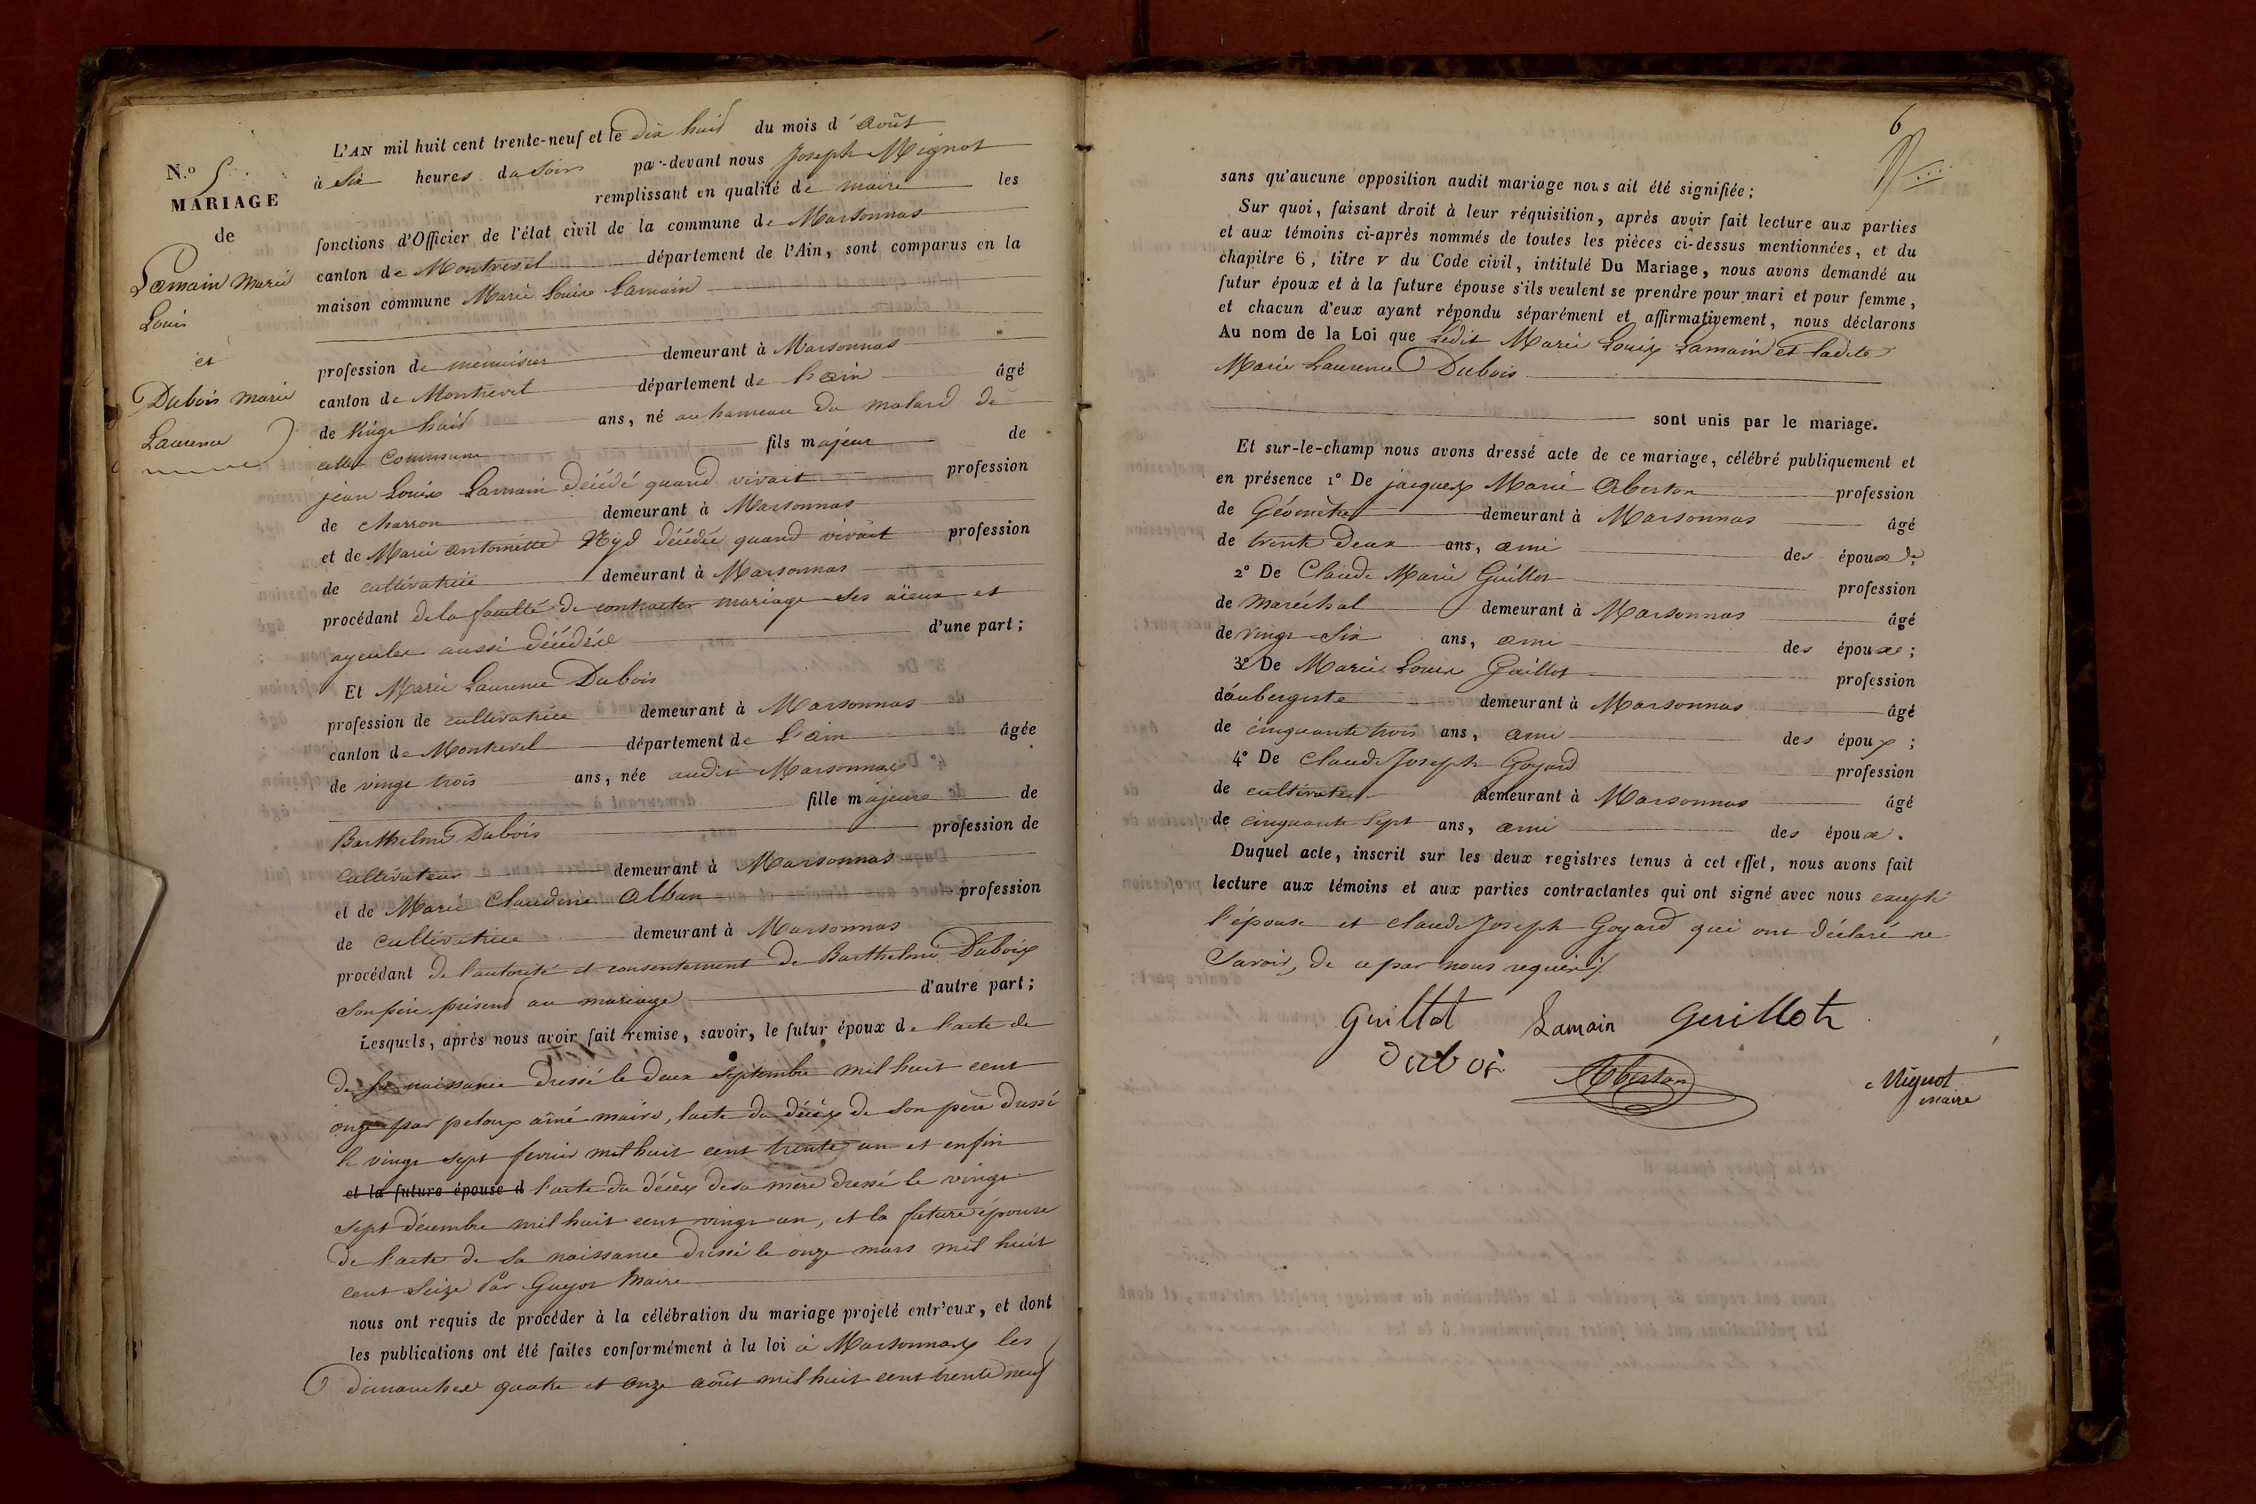 N.o 5
MARIAGE
de
Lamain Marie
Louis
et
Dubois marie
Laurence
L'AN mil huit cent trente-neuf et le dix huit du mois d'août
à six heures du soir par-devant nous Joseph Mignot
remplissant en qualité de maire les
fonctions d'Officier de l'état civil de la commune de Marsonnas
canton de Montrevel département de l'Ain, sont comparus en la
maison commune Marie Louis Lamain
profession de menuisier demeurant à Marsonnas
canton de Montrevel département de l'ain âgé
de vingt huit ans, né au hameau du malard de
cette commune fils majeur de
jean Louis Lamain décédé quand vivait profession
de charron demeurant à Marsonnas
et de Marie antoinette décédée quand vivait profession
de cultivatrice demeurant à Marsonnas
procédant de la faculté de contracter mariage ses aïeux et
ayeules aussi décédés d'une part;
Et Marie Laurence Dubois
profession de cultivatrice demeurant à Marsonnas
canton de Montrevel département de l'ain âgée
de vingt trois ans, née audit Marsonnas
fille majeure de
Barthelmi Dubois profession de
cultivateur demeurant à Marsonnas
et de Marie Claudine Alban profession
de cultivatrice demeurant à Marsonnas
procédant de l'autorité et consentement de Barthelmi Dubois
son père présent au mariage d'autre part;
Lesquels, après nous avoir fait remise, savoir, le futur époux de l'acte de
de sa naissance dressé le deux septembre mil huit cent
onze par peloux aîné maire, l'acte du décès de son père dressé
le vingt sept fevrier mil huit cent trente un et enfin
et la future épouse d l'acte du décès de sa mère dressé le vingt
sept décembre mil huit cent vingt un, et la future épouse
de l'acte de sa naissance dressé le onze mars mil huit
cent seize par Guyot maire
nous ont requis de procéder à la célébration du mariage projeté entr'eux, et dont
les publications ont été faites conformément à la loi à Marsonnas les
dimanches quatre et onze août mil huit cent trente neuf
6
sans qu'aucune opposition audit mariage nous ait été signifiée;
Sur quoi, faisant droit à leur réquisition, après avoir fait lecture aux parties
et aux témoins ci-après nommés de toutes les pièces ci-dessus mentionnées, et du
chapitre 6, titre v du Code civil, intitulé Du Mariage, nous avons demandé au
futur époux et à la future épouse s'ils veulent se prendre pour mari et pour femme,
et chacun d'eux ayant répondu séparément et affirmativement, nous déclarons
Au nom de la Loi que ledit Marie Louis Lamain et ladite
Marie Laurence Dubois
sont unis par le mariage.
Et sur-le-champ nous avons dressé acte de ce mariage, célébré publiquement et
en présence 1° De jacques Marie Aberton profession
de Géomètre demeurant à Marsonnas âgé
de trente deux ans, ami des époux
2° De Claude Marie Guillot profession
de maréchal demeurant à Marsonnas âgé
de vingt six ans, ami des époux;
3° De Marie Louis Guillot profession
d'aubergiste demeurant à Marsonnas âgé
de cinquante trois ans, ami des époux;
4° De Claude Joseph Goyard profession
de cultivateur demeurant à Marsonnas âgé
de cinquante sept ans, ami des époux.
Duquel acte, inscrit sur les deux registres tenus à cet effet, nous avons fait
lecture aux témoins et aux parties contractantes qui ont signé avec nous excepté
l'épouse et claude Joseph Goyard qui ont déclaré ne
savoir, de ce par nous requéris
Guillot Lamain Guillot
Dubois Aberton
Mignot
maire